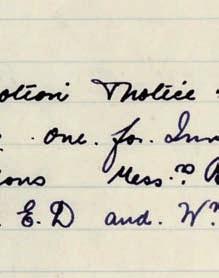 otion Notice
. one. for. Inn
ions Mess.rs R
E. D and. Wm